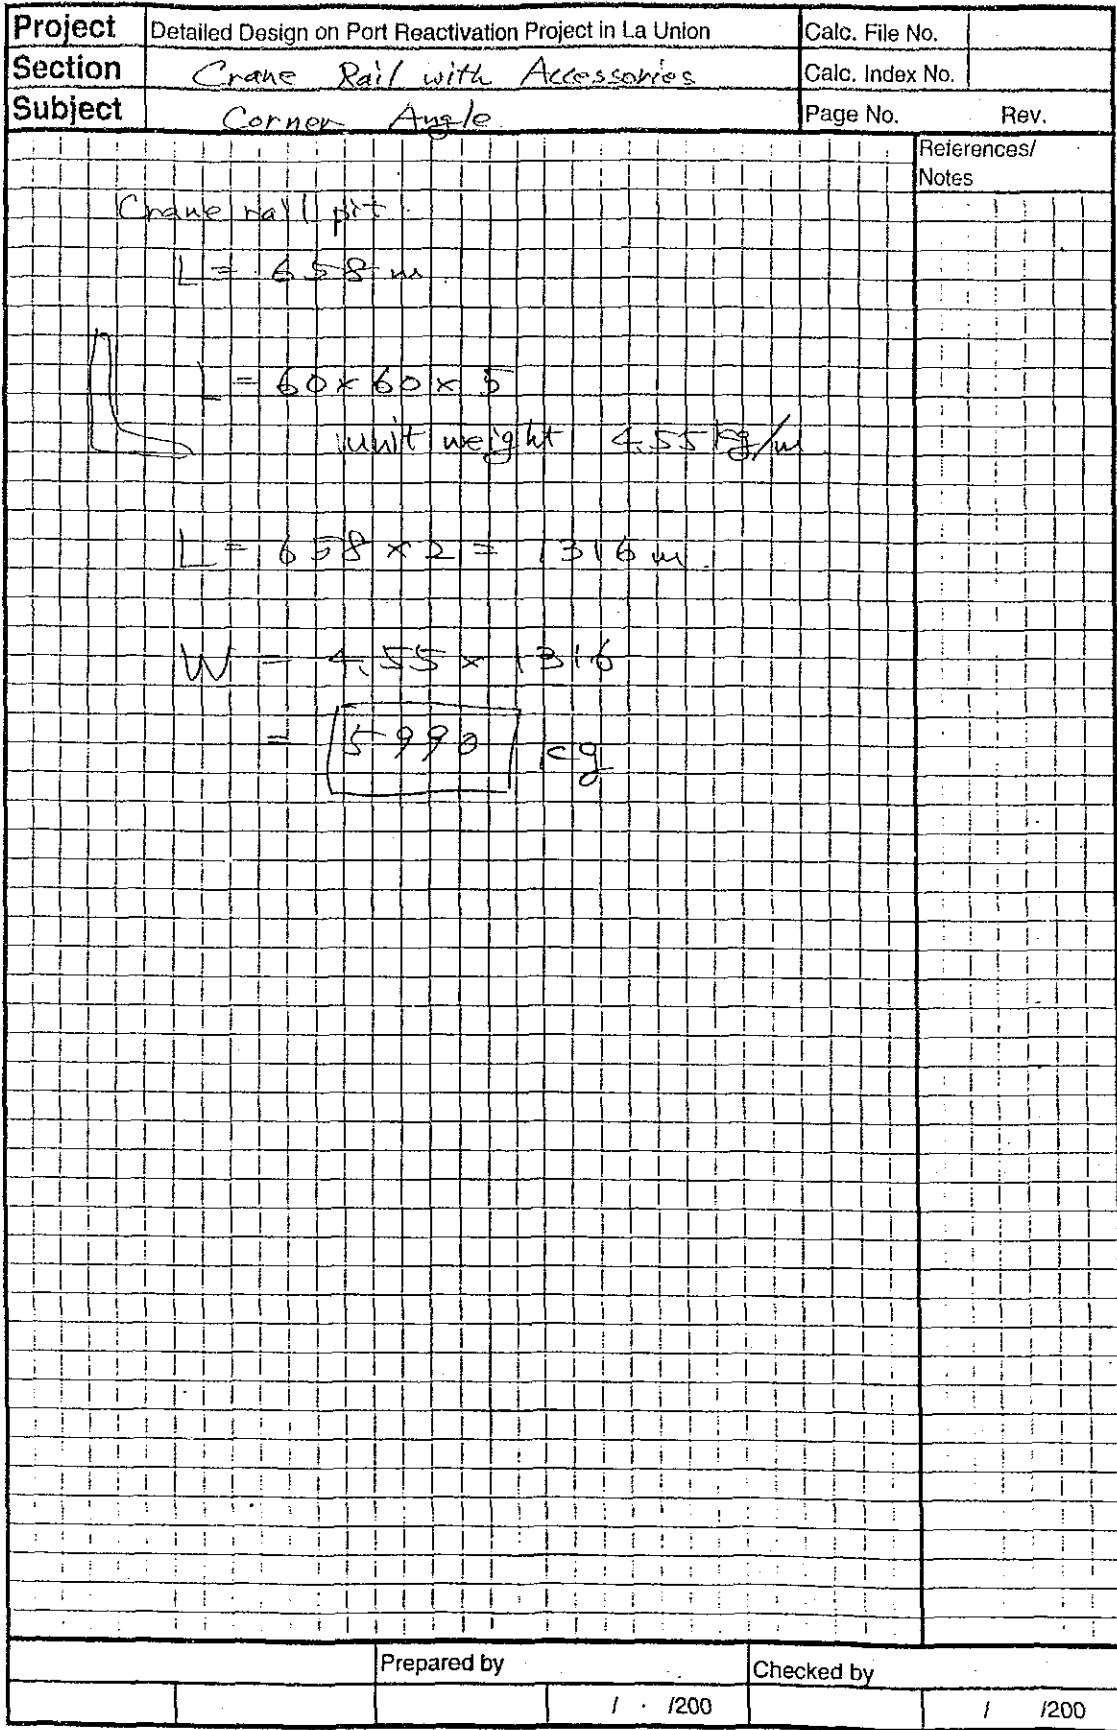 Project Detailed Design on Port Reactivation Project in La Union Calc. File No.
Section Crane Rail with Accessories Calc. Index No.
Subject Corner Angle Page No. Rev.
References/
Notes
Crane rail pit
L = 658 m
L = 60 x 60 x 5
unit weight 4.55 kg/m
L = 658 x 2 = 1316 m
W = 4.55 x 1316
= 5990 kg
Prepared by Checked by
/ /200 / /200